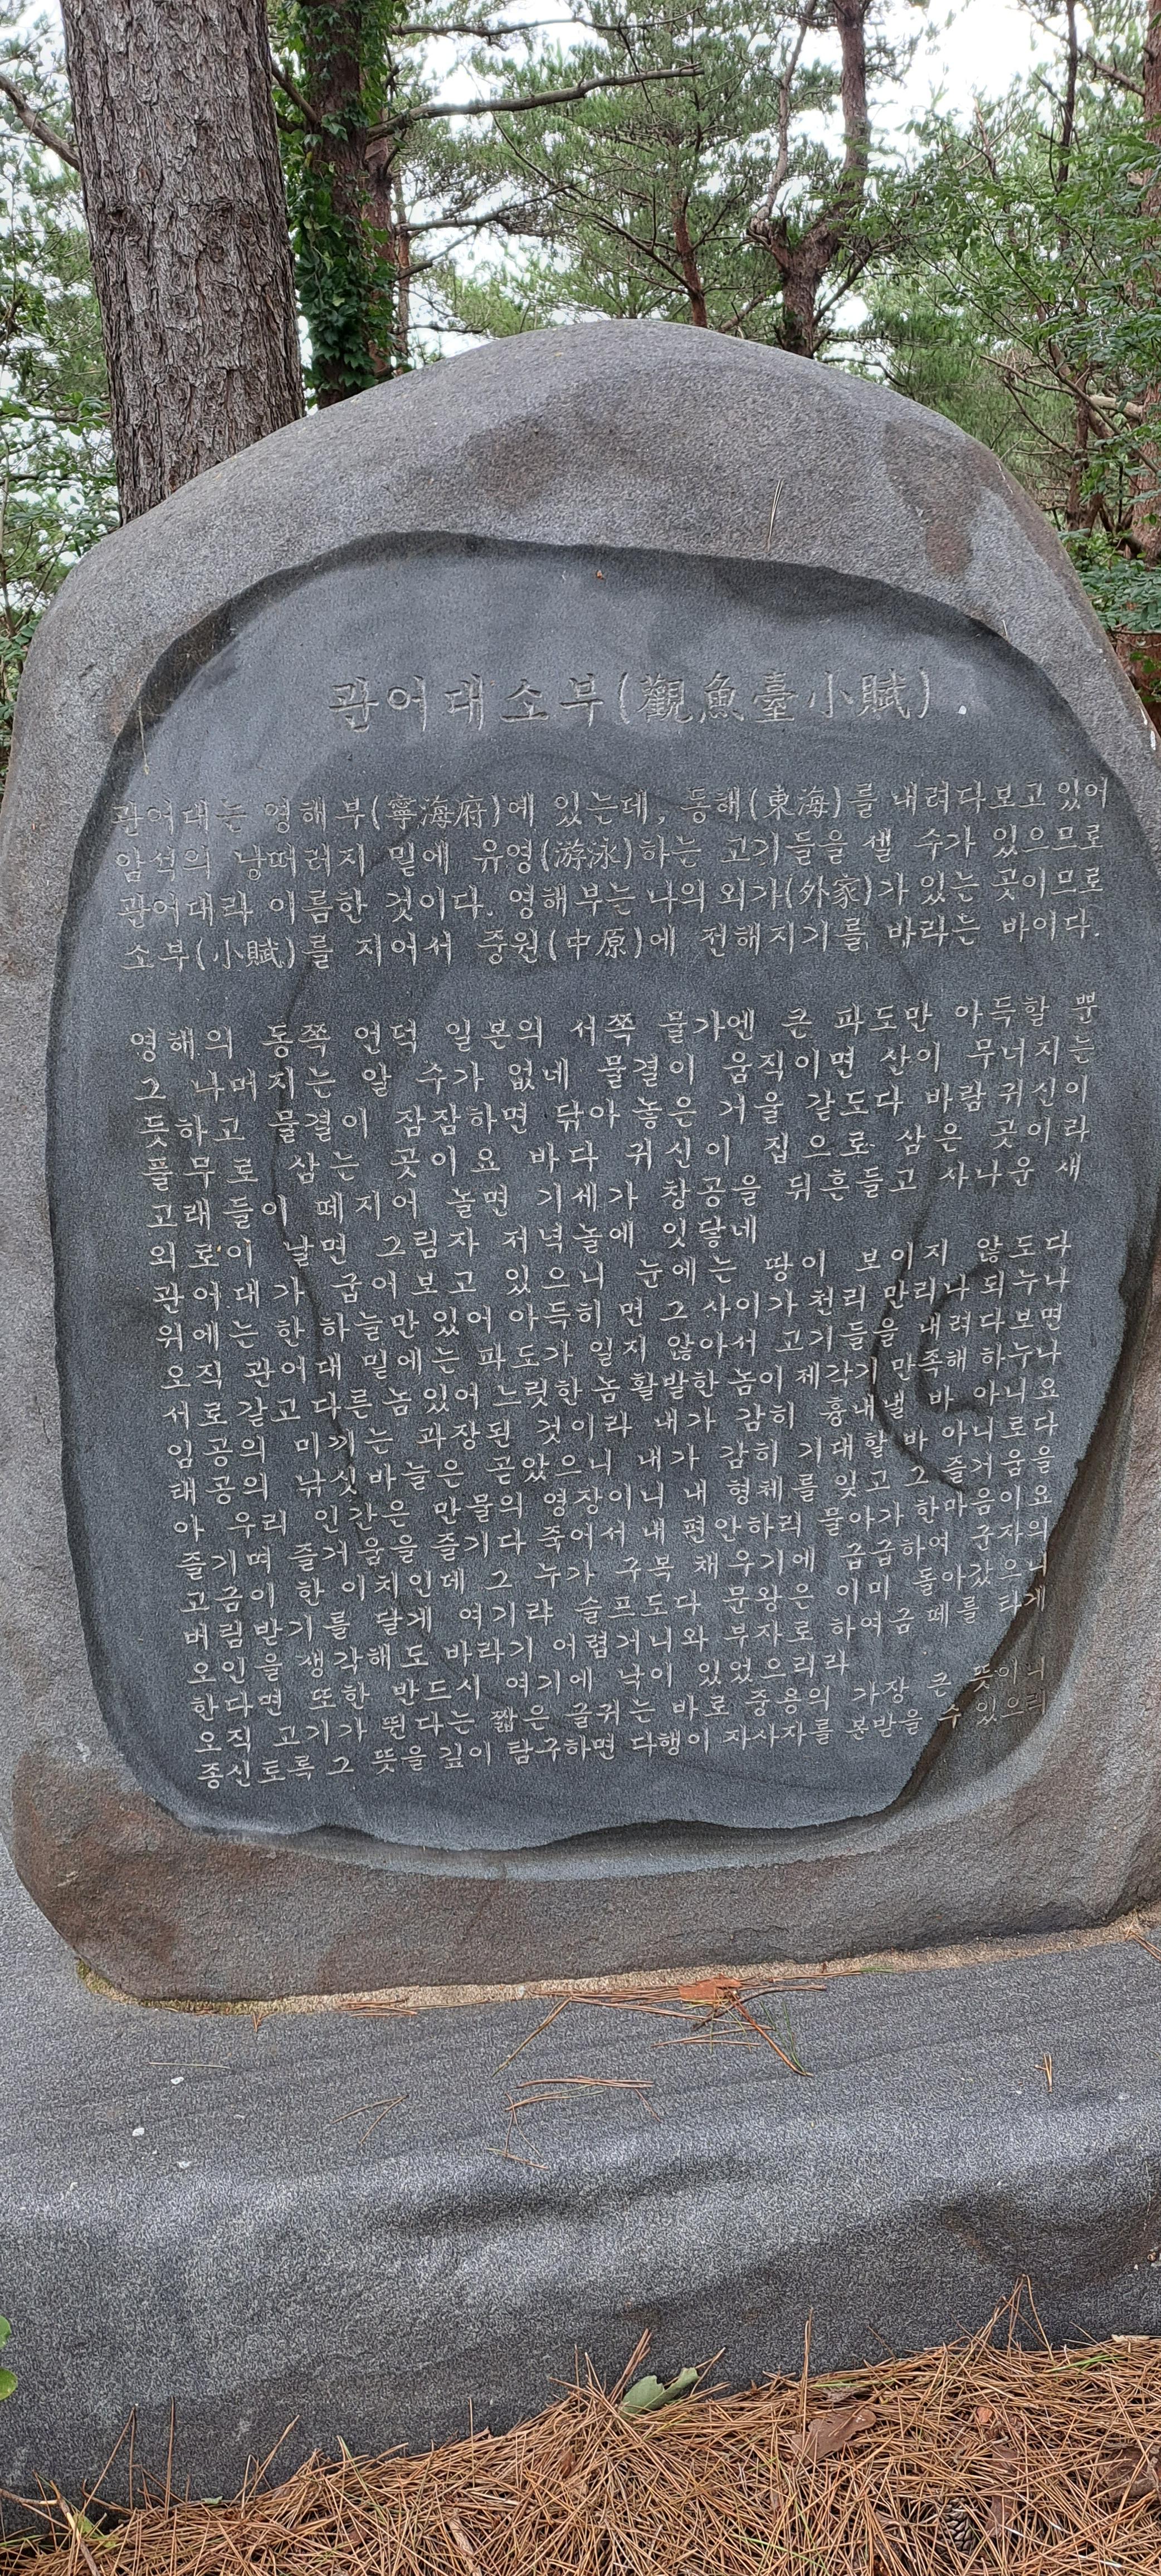 관어대소부(觀魚臺小賦)
관어대는 영해부(寧海府)에 있는데, 동해(東海)를 내려다보고 있어
암석의 낭떠러지 밑에 유영(游泳)하는 고기들을 셀 수가 있으므로
관어대라 이름한 것이다. 영해부는 나의 외가(外家)가 있는 곳이므로
소부(小賦)를 지어서 중원(中原)에 전해지기를 바라는 바이다.
영해의 동쪽 언덕 일본의 서쪽 물가엔 큰 파도만 아득할 뿐
그 나머지는 알 수가 없네 물결이 움직이면 산이 무너지는
듯하고 물결이 잠잠하면 닦아 놓은 거울 같도다 바람 귀신이
풀무로 삼는 곳이요 바다 귀신이 집으로 삼은 곳이라
고래들이 떼지어 놀면 기세가 창공을 뒤흔들고 사나운 새
외로이 날면 그림자 저녁놀에 잇닿네
관어대가 굽어보고 있으니 눈에는 땅이 보이지 않도다
위에는 한 하늘만 있어 아득히 먼 그 사이가 천리 만리나 되누나
오직 관어대 밑에는 파도가 일지 않아서 고기들을 내려다보면
서로 같고 다른 놈 있어 느릿한 놈 활발한 놈이 제각기 만족해 하누나
임공의 미끼는 과장된 것이라 내가 감히 흉내낼 바 아니요
태공의 낚싯바늘은 곧았으니 내가 감히 기대할 바 아니로다
아 우리 인간은 만물의 영장이니 내 형체를 잊고 그 즐거움을
즐기며 즐거움을 즐기다 죽어서 내 편안하리 물아가 한마음이요
고금이 한 이치인데 그 누가 구복 채우기에 급급하여 군자의
버림받기를 달게 여기랴 슬프도다 문왕은 이미 돌아갔으니
오인을 생각해도 바라기 어렵거니와 부자로 하여금 떼를 타게
한다면 또한 반드시 여기에 낙이 있었으리라
오직 고기가 뛴다는 짧은 글귀는 바로 중용의 가장 큰 뜻이니
종신토록 그 뜻을 깊이 탐구하면 다행이 자사자를 본받을 수 있으리